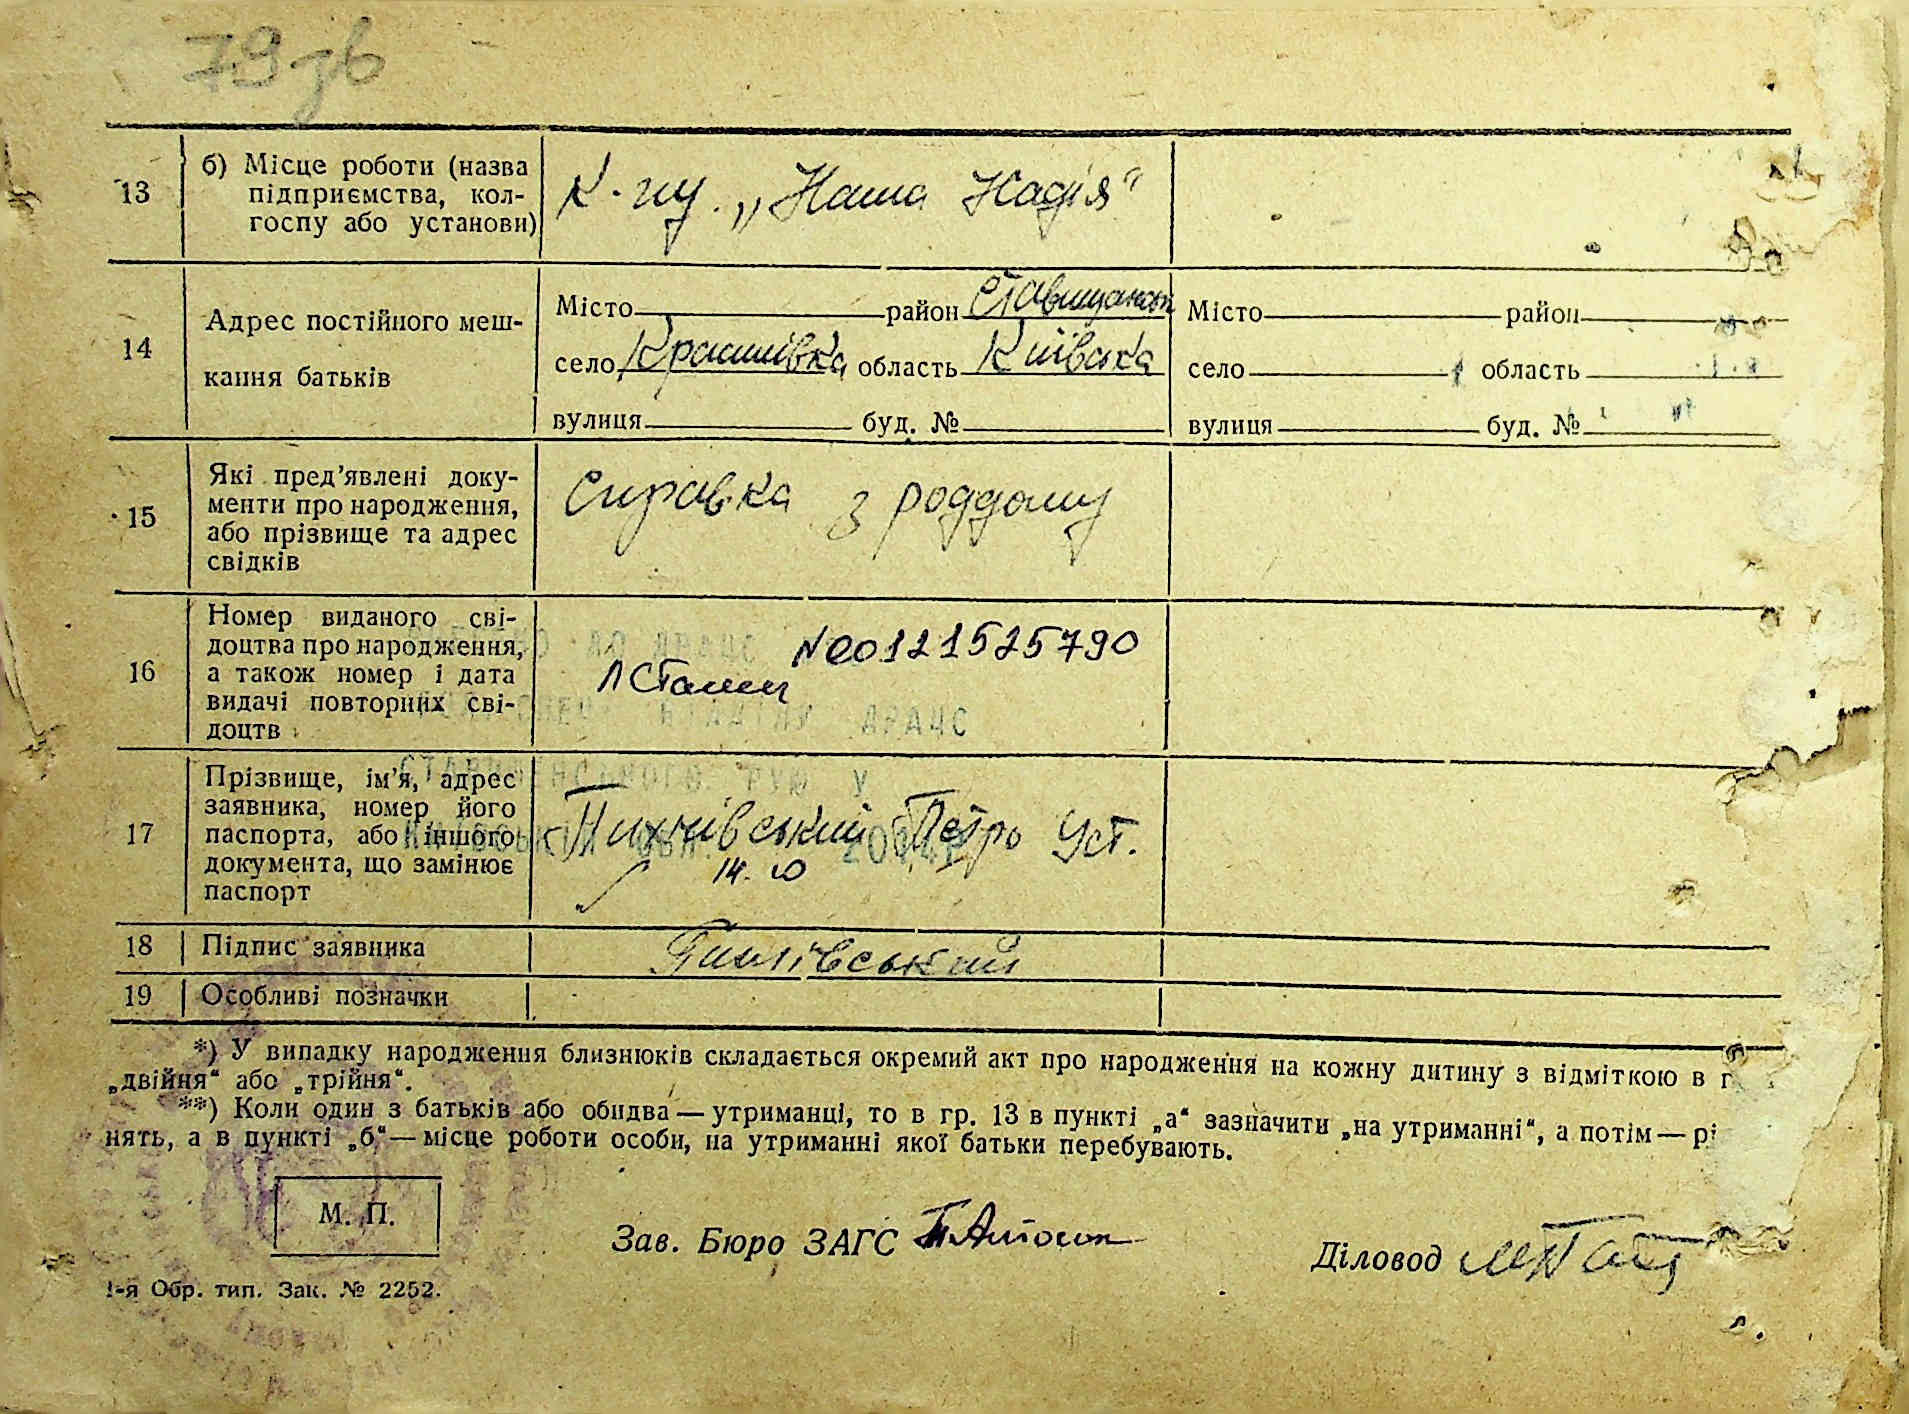 79 зв
13
б) Місце роботи (назва
підприємства, кол-
госпу або установи)
К-гу. „Наша Надія“
14
Адрес постійного меш-
кання батьків
Місто район Ставищанськ
село Крашівка область Київська
вулиця буд. №
Місто район
село область
вулиця буд. №
15
Які пред’явлені доку-
менти про народження,
або прізвище та адрес
свідків
Справка з роддому
16
Номер виданого сві-
доцтва про народження,
а також номер і дата
видачі повторних сві-
доцтв
№00121525790
ДРАЦС
ВІДДІЛУ ДРАЦС
17
Прізвище, ім’я, адрес
заявника, номер його
паспорта, або іншого
документа, що замінює
паспорт
РУЮ У
Петро Уст.
18
Підпис заявника
19
Особливі позначки
*) У випадку народження близнюків складається окремий акт про народження на кожну дитину з відміткою в г
„двійня“ або „трійня“.
**) Коли один з батьків або обидва — утриманці, то в гр. 13 в пункті „а“ зазначити „на утриманні“, а потім — рі
нять, а в пункті „б“ — місце роботи особи, на утриманні якої батьки перебувають.
М. П.
Зав. Бюро ЗАГС
Діловод
1-я Обр. тип. Зак. № 2252.